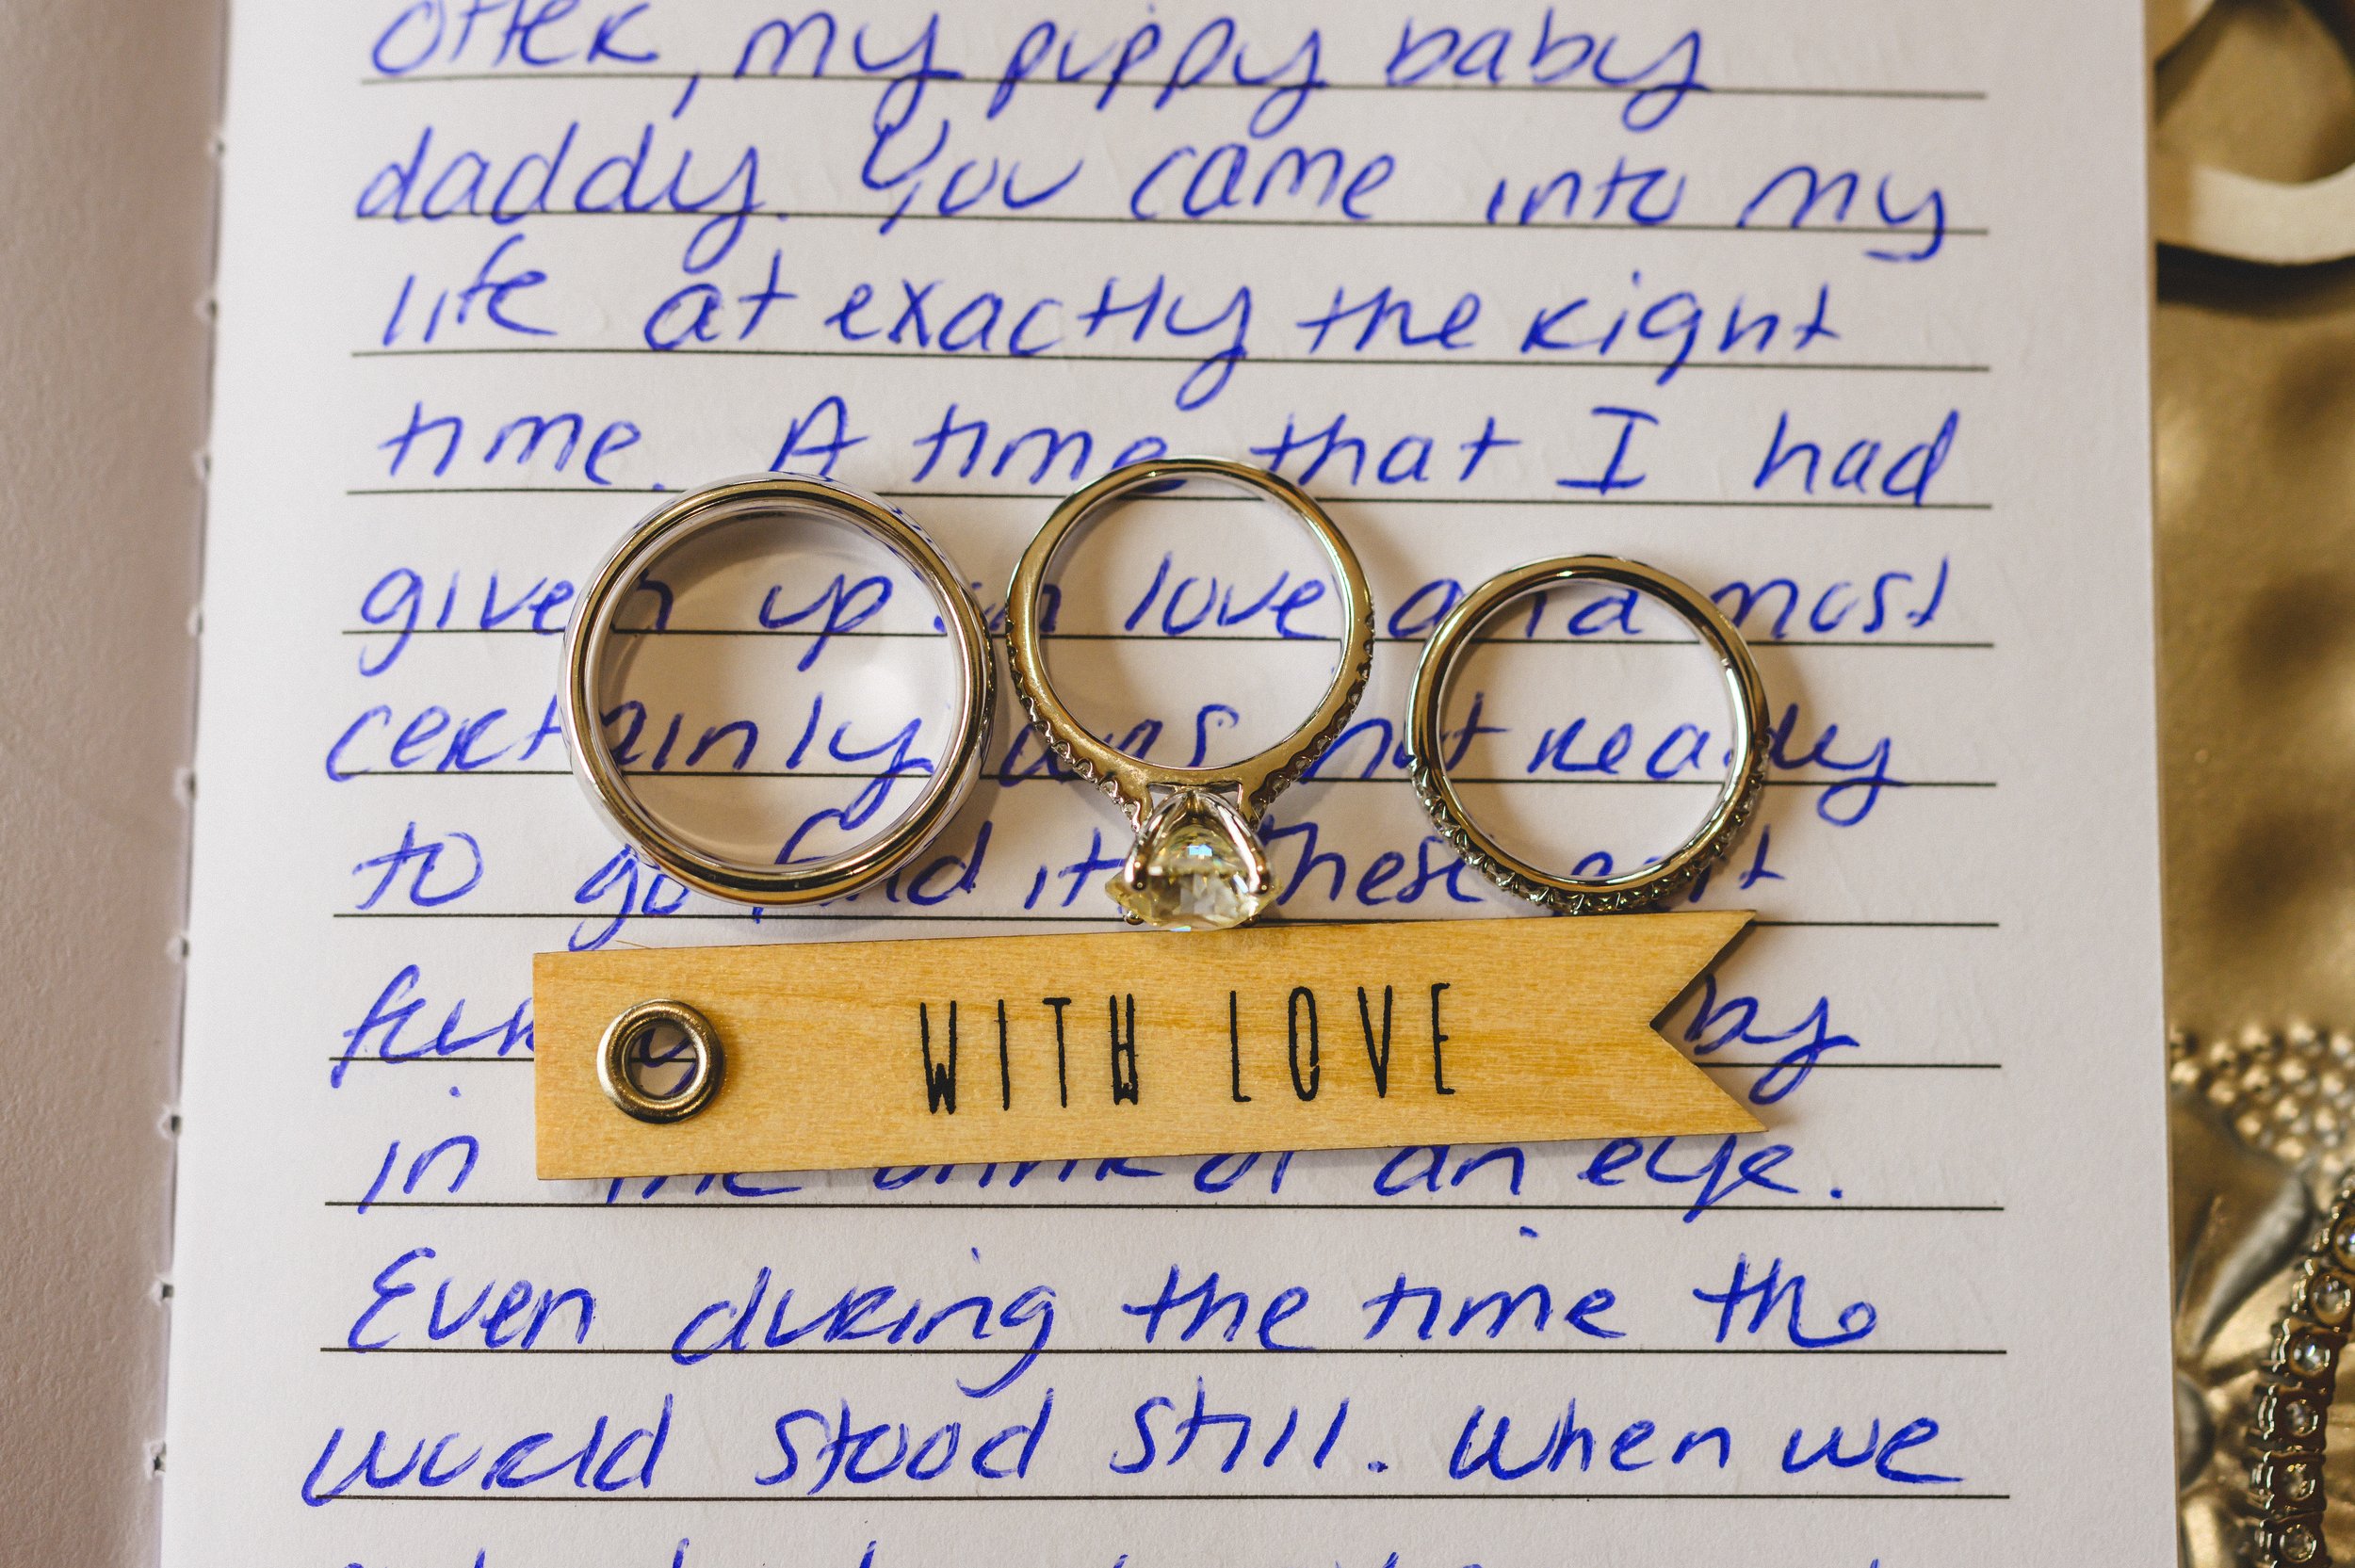 otter, my puppy baby
daddy. You came into my
life at exactly the right
time. A time that I had
given up on love and most
certainly was not ready
to go find it. These past
by
WITH LOVE
in the blink of an eye.
Even during the time the
world stood still. When we